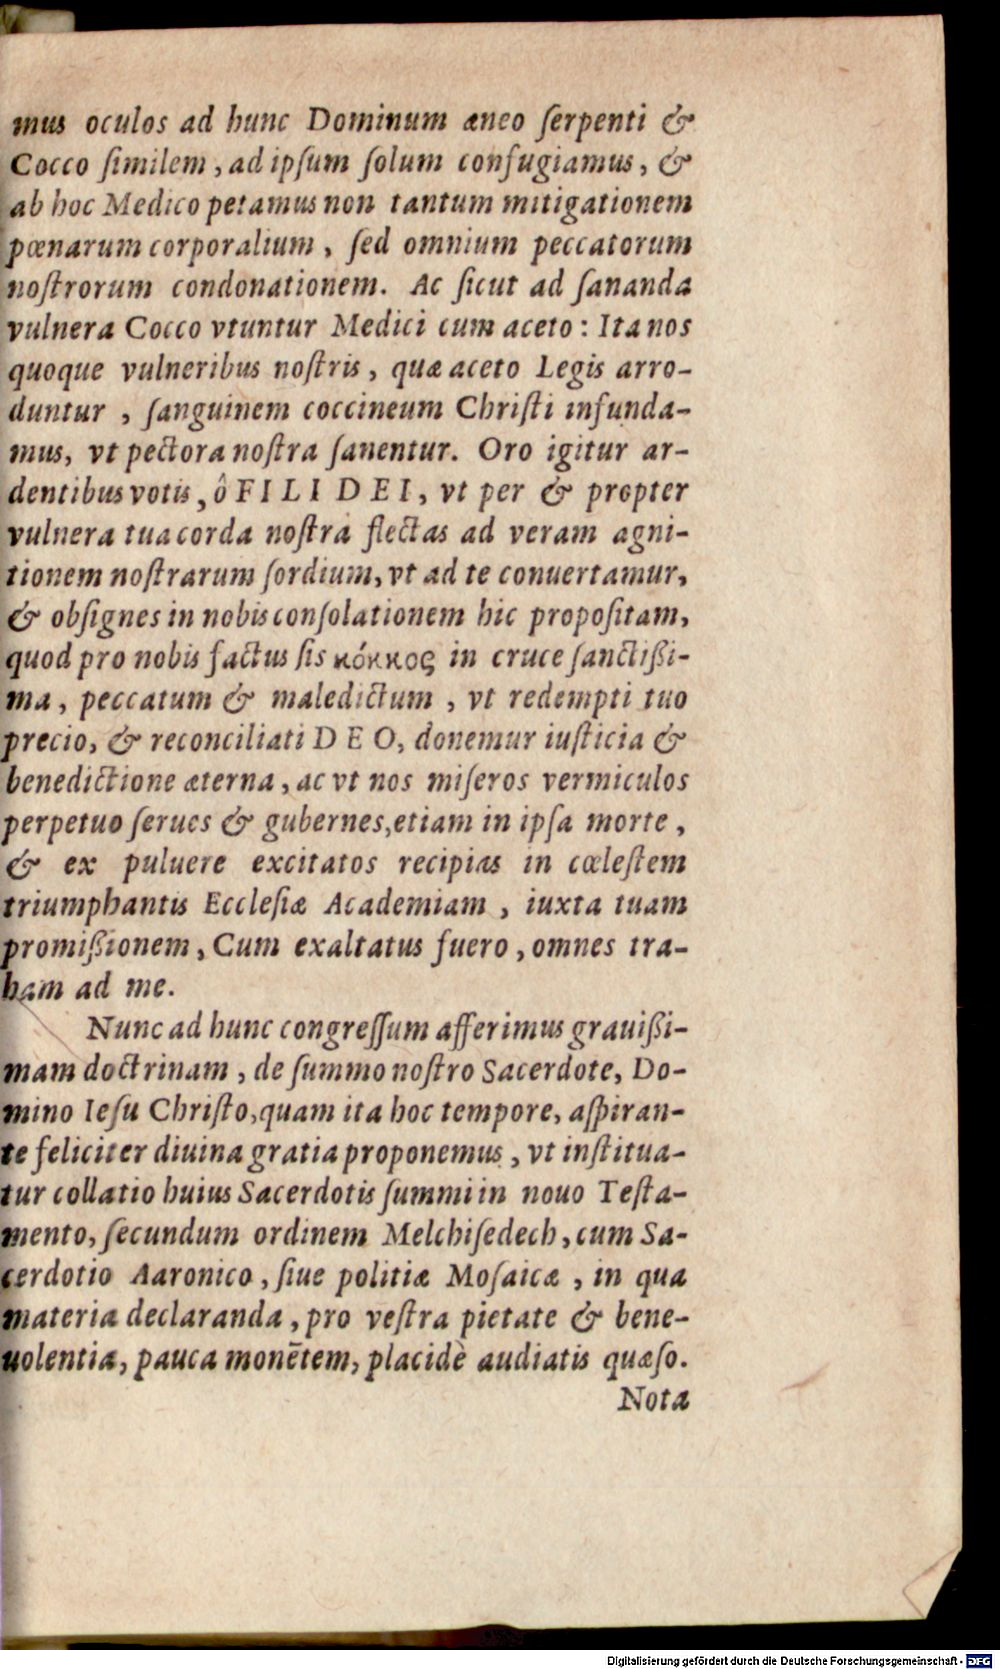 mus oculos ad hunc Dominum æneo ſerpenti &
Cocco ſimilem, ad ipſum ſolum confugiamus, &
ab hoc Medico petamus non tantum mitigationem
pœnarum corporalium, ſed omnium peccatorum
noſtrorum condonationem. Ac ſicut ad ſananda
vulnera Cocco vtuntur Medici cum aceto: Ita nos
quoque vulneribus noſtris, quæ aceto Legis arro-
duntur, ſanguinem coccineum Chriſti infunda-
mus, vt pectora noſtra ſanentur. Oro igitur ar-
dentibus votis, ô FILI DEI, vt per & propter
vulnera tua corda noſtra flectas ad veram agni-
tionem noſtrarum ſordium, vt ad te conuertamur,
& obſignes in nobis conſolationem hic propoſitam,
quod pro nobis factus ſis κόκκος in cruce ſanctißi-
ma, peccatum & maledictum, vt redempti tuo
precio, & reconciliati DEO, donemur iuſticia &
benedictione æterna, ac vt nos miſeros vermiculos
perpetuo ſerues & gubernes, etiam in ipſa morte,
& ex puluere excitatos recipias in cœleſtem
triumphantis Eccleſiæ Academiam, iuxta tuam
promißionem, Cum exaltatus fuero, omnes tra-
ham ad me.
Nunc ad hunc congreſſum afferimus grauißi-
mam doctrinam, de ſummo noſtro Sacerdote, Do-
mino Ieſu Chriſto, quam ita hoc tempore, aſpiran-
te feliciter diuina gratia proponemus, vt inſtitua-
tur collatio huius Sacerdotis ſummi in nouo Teſta-
mento, ſecundum ordinem Melchiſedech, cum Sa-
cerdotio Aaronico, ſiue politiæ Moſaicæ, in qua
materia declaranda, pro veſtra pietate & bene-
uolentia, pauca monētem, placidè audiatis quæſo.
Nota
Digitalisierung gefördert durch die Deutsche Forschungsgemeinschaft - DFG